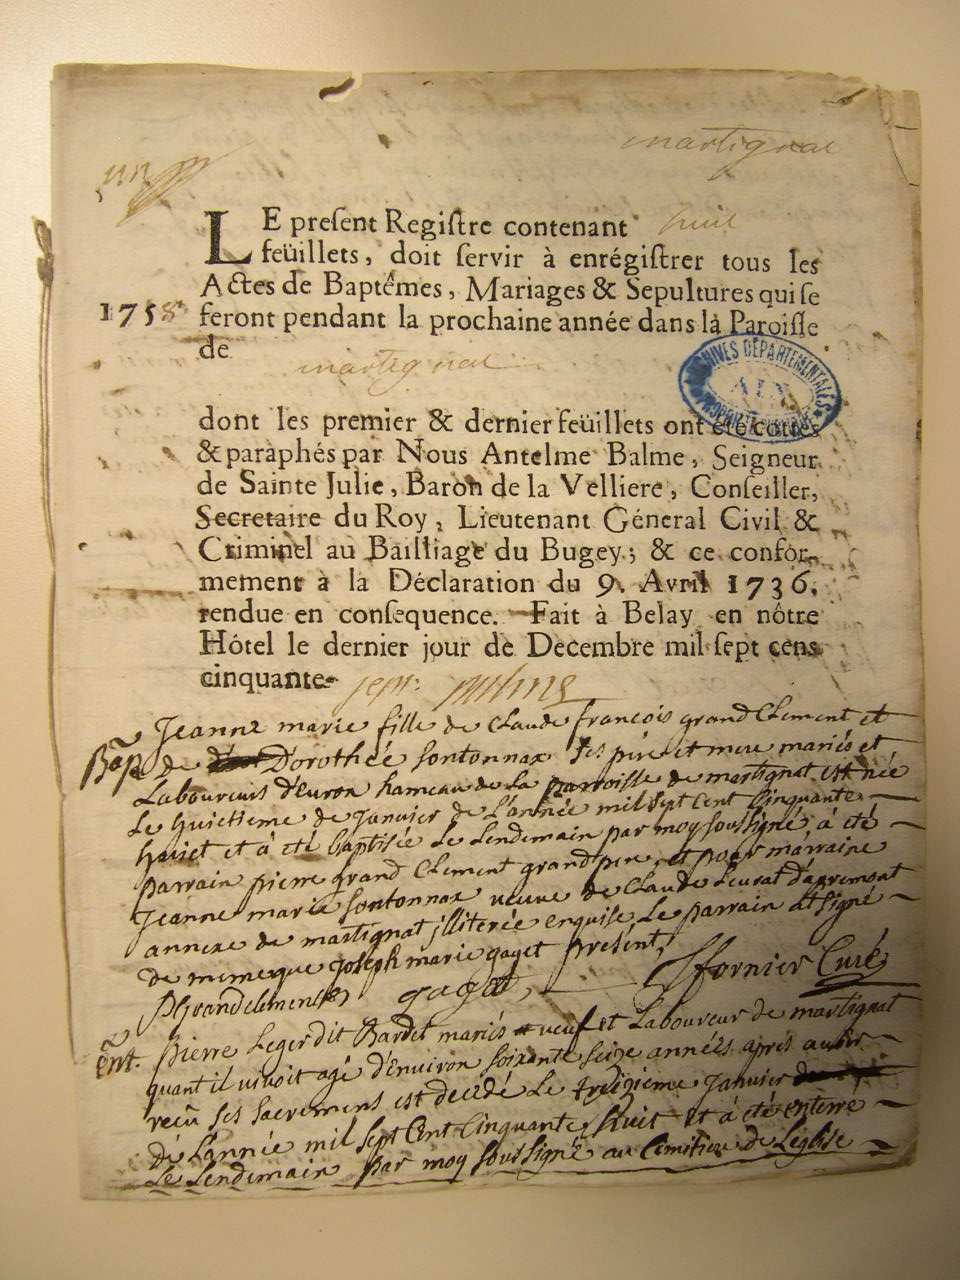 martignat
LE preſent Regiſtre contenant huit
feüillets, doit ſervir à enrégiſtrer tous les
Actes de Baptêmes, Mariages & Sepultures qui ſe
1758 feront pendant la prochaine année dans la Paroiſſe
de martignat
ARCHIVES DÉPARTEMENTALES
AIN
dont les premier & dernier feüillets ont été cottés
& paraphés par Nous Antelme Balme, Seigneur
de Sainte Julie, Baron de la Velliere, Conſeiller,
Secretaire du Roy, Lieutenant Géneral Civil &
Criminel au Bailliage du Bugey; & ce confor-
mement à la Déclaration du 9. Avril 1736.
rendue en conſequence. Fait à Belay en nôtre
Hôtel le dernier jour de Decembre mil ſept cens
cinquante sept
Jeanne marie fille de Claude françois grand Clement et
Bap. de Dorothée sontonnax ses père et mere mariés et
Laboureurs d'Evron hameau de La parroisse de martignat est née
Le huitieme de Janvier de L'année mil sept Cent Cinquante
huict et à été baptisée Le Lendemain par moy soussigné, à été
parrain pierre grand Clement grand pere, et pour marraine
Jeanne marie sontonnax veuve de Claude Levrat d'apremont
annexe de martignat jlliterée enquise, Le parrain at signé
de meme que Joseph marie gaget présent,
PGrandclement gaget, ffornier Curé
Ent. Pierre Leger dit Bardet mariés veuf et Laboureur de martignat
quant il vivoit agé d'environ soixante seize années après avoir
recû ses sacremens est decedé Le treizieme Janvier
dé L'année mil sept Cent Cinquante huit et à été enterré
Le Lendemain par moy soussigné au Cimitiere de L'église